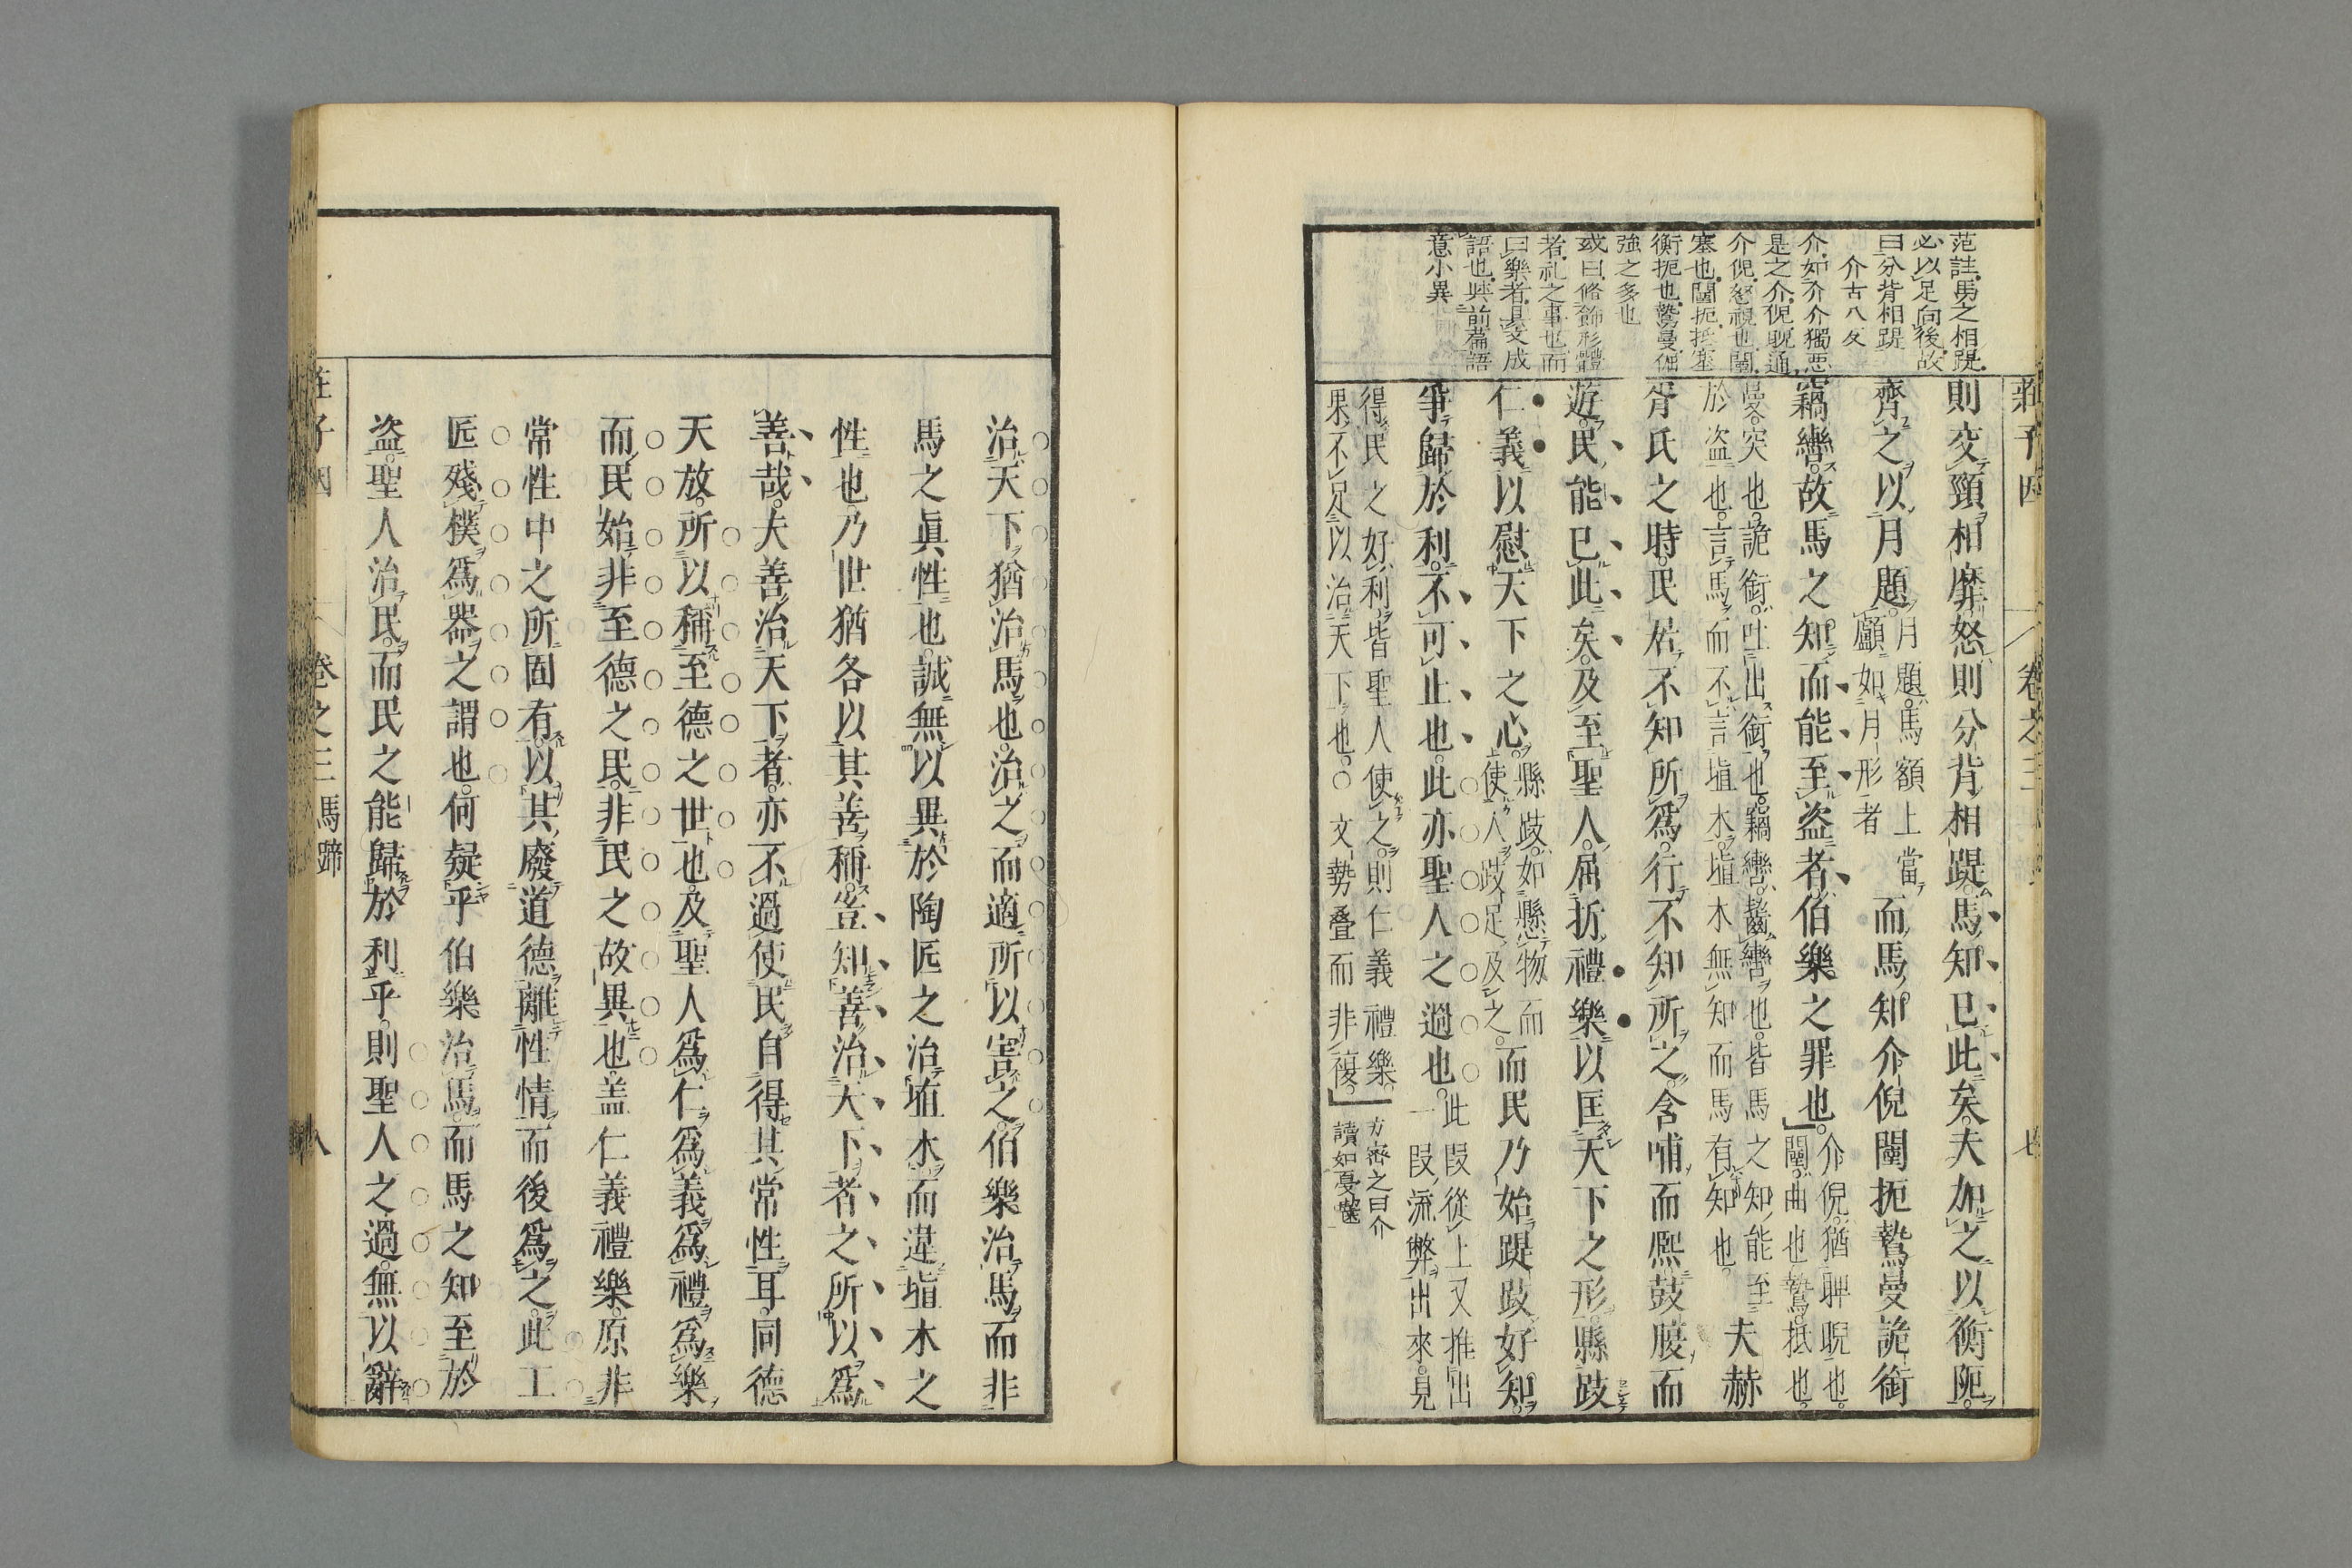 莊子因
卷之三
七
范註馬之相踶
必以足向後故
曰分背相踶
介古八夂
介如介介獨惡
是之介倪睨通
介倪怒視也闉
塞也闉扼抵塞
衡扼也鷙曼倔
強之多也
或曰脩飾形體
者礼之事也而
曰樂者是文成
語也與前篇語
意小異
則交頸相靡怒則分背相踶馬知已此矣夫加之以衡阨
齊之以月題
月題馬額上當
顱如月形者
而馬知介倪闉扼鷙曼詭銜
竊轡故馬之知而能至盜者伯樂之罪也
介倪猶睥睨也
闉曲也鷙抵也
曼突也詭銜吐出銜也竊轡齧轡也皆馬之知能至
於盜也言馬而不言埴木埴木無知而馬有知也
夫赫
胥氏之時民居不知所爲行不知所之含哺而熈鼓腹而
遊民能已此矣及至聖人屈折禮樂以匡天下之形縣跂
仁義以慰天下之心
縣跂如懸物而
使人跂足及之
而民乃始踶跂好知
爭歸於利不可止也此亦聖人之過也
此段從上又推出
一段流弊出來見
得民之好利皆聖人使之則仁義禮樂
果不足以治天下也○文勢叠而非複
方密之曰介
讀如戛
治天下猶治馬也治之而適所以害之伯樂治馬而非
馬之眞性也誠無以異於陶匠之治埴木而違埴木之
性也乃世猶各以其善稱豈知善治天下者之所以爲
善哉夫善治天下者亦不過使民自得其常性耳同德
天放所以稱至德之世也及聖人爲仁爲義爲禮爲樂
而民始非至德之民非民之故異也盖仁義禮樂原非
常性中之所固有以其廢道德離性情而後爲之此工
匠殘樸爲器之謂也何疑乎伯樂治馬而馬之知至於
盜聖人治民而民之能歸於利乎則聖人之過無以辭
莊子因
卷之三馬蹄
八